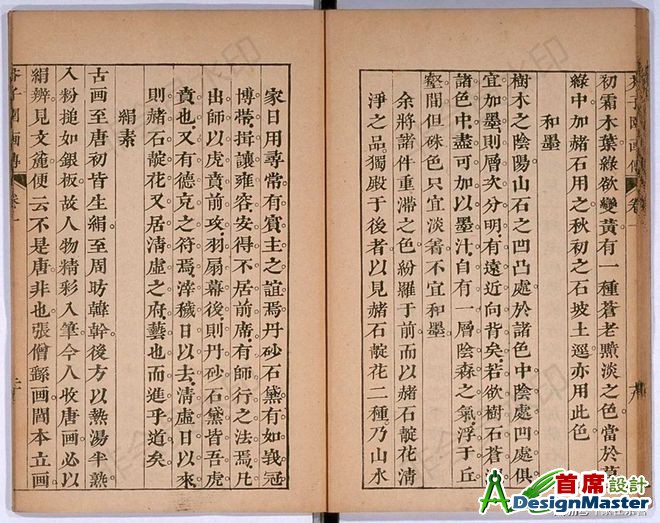 初霜木葉綠欲變黃有一種蒼老黯淡之色當於草
綠中加赭石用之秋初之石坡土逕亦用此色
和墨
樹木之陰陽山石之凹凸處於諸色中陰處凹處俱
宜加墨則層次分明有遠近向背矣若欲樹石蒼潤
諸色中盡可加以墨汁自有一層陰森之氣浮于丘
壑間但硃色只宜淡著不宜和墨
余將諸件重滯之色紛羅于前而以赭石靛花清
淨之品獨殿于後者以見赭石靛花二種乃山水
家日用尋常有賓主之誼焉丹砂石黛有如峩冠
博帶揖讓雍容安得不居前席有師行之法焉凡
出師以虎賁前攻羽扇幕後則丹砂石黛皆吾虎
賁也又有德充之符焉滓穢日以去清虛日以來
則赭石靛花又居清虛之府藝也而進乎道矣
絹素
古画至唐初皆生絹至周昉韓幹後方以熱湯半熟
入粉搥如銀板故人物精彩入筆今人收唐画必以
絹辨見文麄便云不是唐非也張僧繇画閻本立画
芥子園画傳
卷一
首席設計
DesignMaster